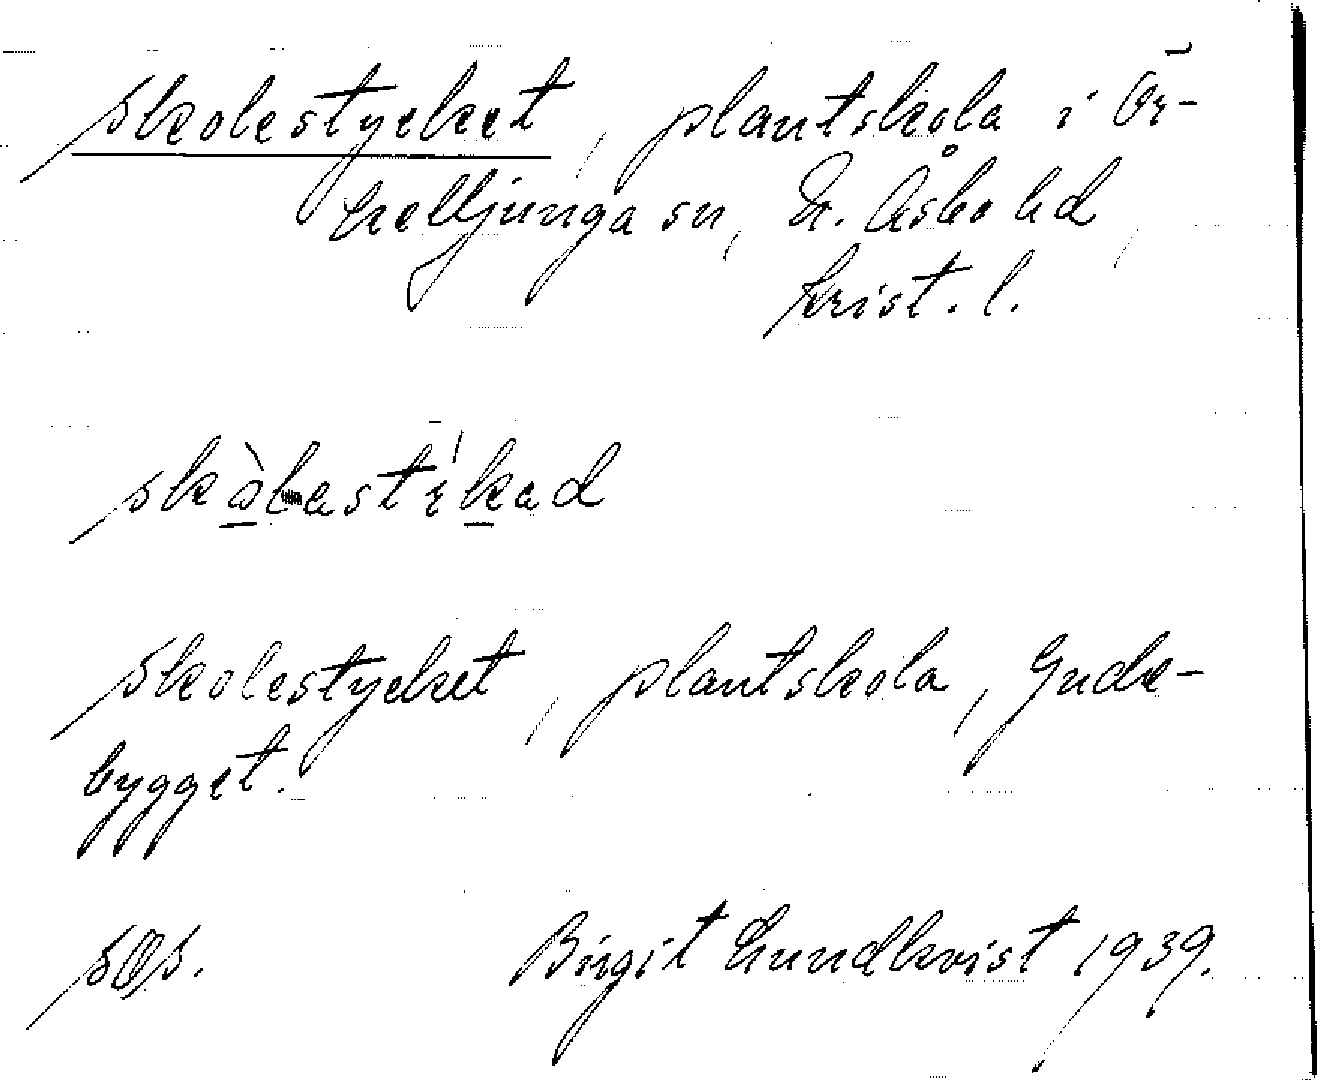 skolestycket, plantskola i Ör-
kelljunga sn, N. Åsbo hd,
krist. l.
skolestycket, plantskola, Gude-
bygget.
Birgit Lundkvist 1939.